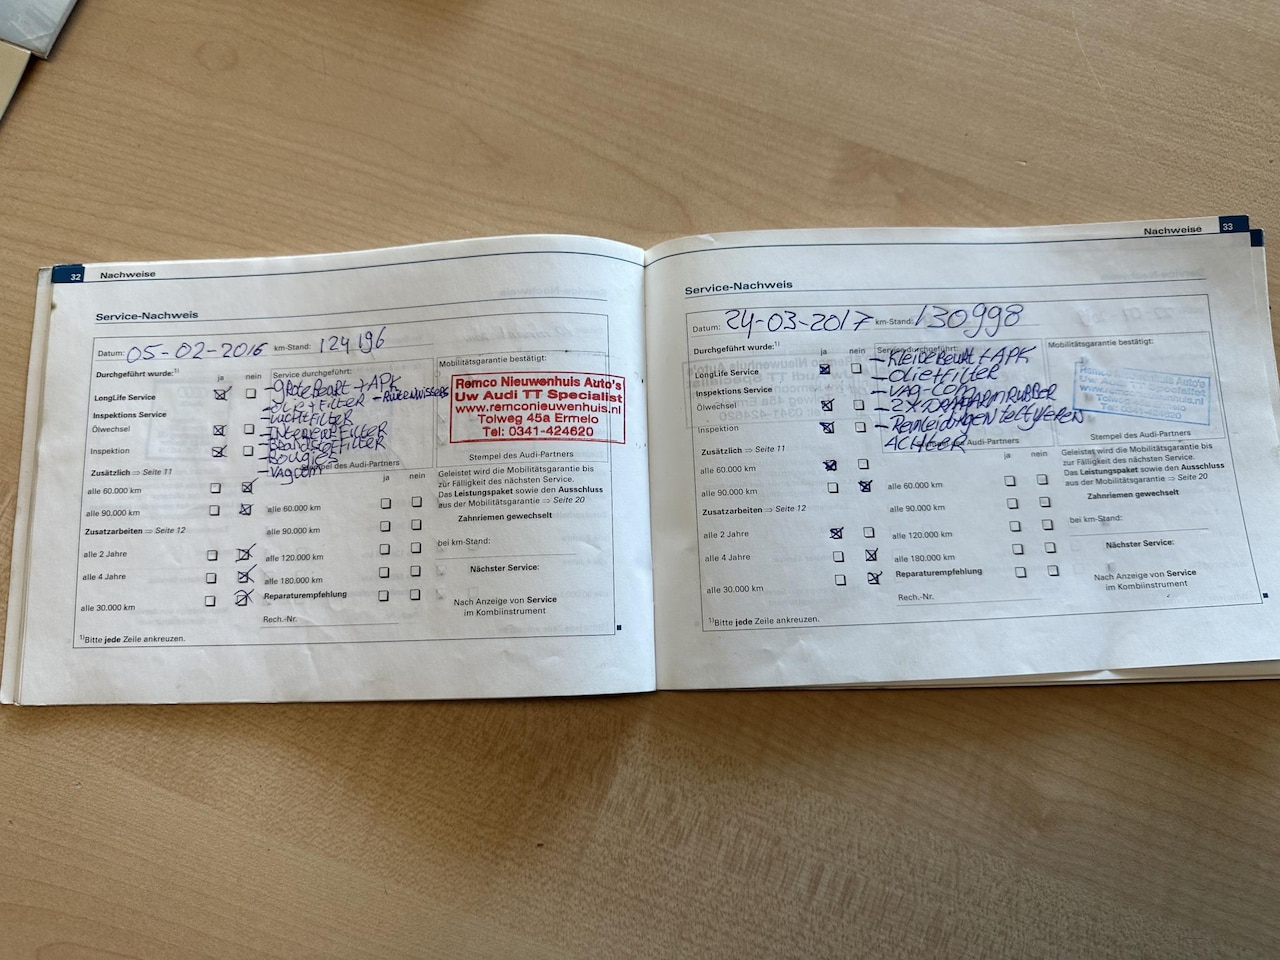 32 Nachweise
Service-Nachweis
Datum: 05-02-2016 km-Stand: 124196
Durchgeführt wurde:¹⁾
ja nein
LongLife Service
Inspektions Service
Ölwechsel
Inspektion
Zusätzlich ⇒ Seite 11
alle 60.000 km
alle 90.000 km
Zusatzarbeiten ⇒ Seite 12
alle 2 Jahre
alle 4 Jahre
alle 30.000 km
¹⁾Bitte jede Zeile ankreuzen.
Service durchgeführt:
- grote Beurt + APK
- Olie + Filter - Ruitenwissers
- Luchtfilter
- Interieurfilter
- Brandstoffilter
- Bougies
- Vagcom
Stempel des Audi-Partners
ja nein
alle 60.000 km
alle 90.000 km
alle 120.000 km
alle 180.000 km
Reparaturempfehlung
Rech.-Nr.
Mobilitätsgarantie bestätigt:
Remco Nieuwenhuis Auto's
Uw Audi TT Specialist
www.remconieuwenhuis.nl
Tolweg 45a Ermelo
Tel: 0341-424620
Stempel des Audi-Partners
Geleistet wird die Mobilitätsgarantie bis
zur Fälligkeit des nächsten Service.
Das Leistungspaket sowie den Ausschluss
aus der Mobilitätsgarantie ⇒ Seite 20
Zahnriemen gewechselt
bei km-Stand:
Nächster Service:
Nach Anzeige von Service
im Kombiinstrument
Nachweise 33
Service-Nachweis
Datum: 24-03-2017 km-Stand: 130998
Durchgeführt wurde:¹⁾
ja nein
LongLife Service
Inspektions Service
Ölwechsel
Inspektion
Zusätzlich ⇒ Seite 11
alle 60.000 km
alle 90.000 km
Zusatzarbeiten ⇒ Seite 12
alle 2 Jahre
alle 4 Jahre
alle 30.000 km
¹⁾Bitte jede Zeile ankreuzen.
Service durchgeführt:
- Kleine Beurt + APK
- Olie + Filter
- VAG-COM
- 2x DRAAGARMRUBBER
- Remleidingen
ACHTER
des Audi-Partners
ja nein
alle 60.000 km
alle 90.000 km
alle 120.000 km
alle 180.000 km
Reparaturempfehlung
Rech.-Nr.
Mobilitätsgarantie bestätigt:
Remco Nieuwenhuis Auto's
Uw Audi TT Specialist
www.remconieuwenhuis.nl
Tolweg 45a Ermelo
Tel: 0341-424620
Stempel des Audi-Partners
Geleistet wird die Mobilitätsgarantie bis
zur Fälligkeit des nächsten Service.
Das Leistungspaket sowie den Ausschluss
aus der Mobilitätsgarantie ⇒ Seite 20
Zahnriemen gewechselt
bei km-Stand:
Nächster Service:
Nach Anzeige von Service
im Kombiinstrument